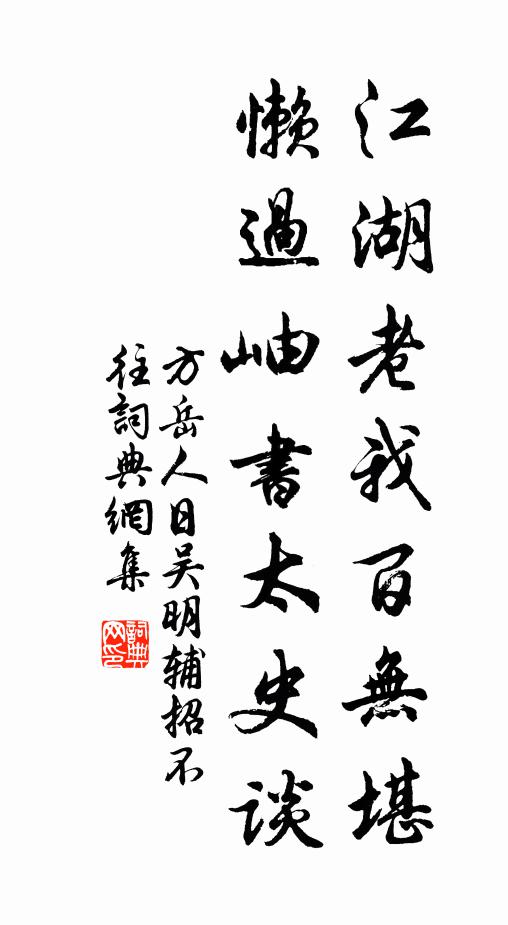 江湖老我百無堪
懶過岫書太史談
方岳人日吴明辅招不
往詞典網集
詞典
网印